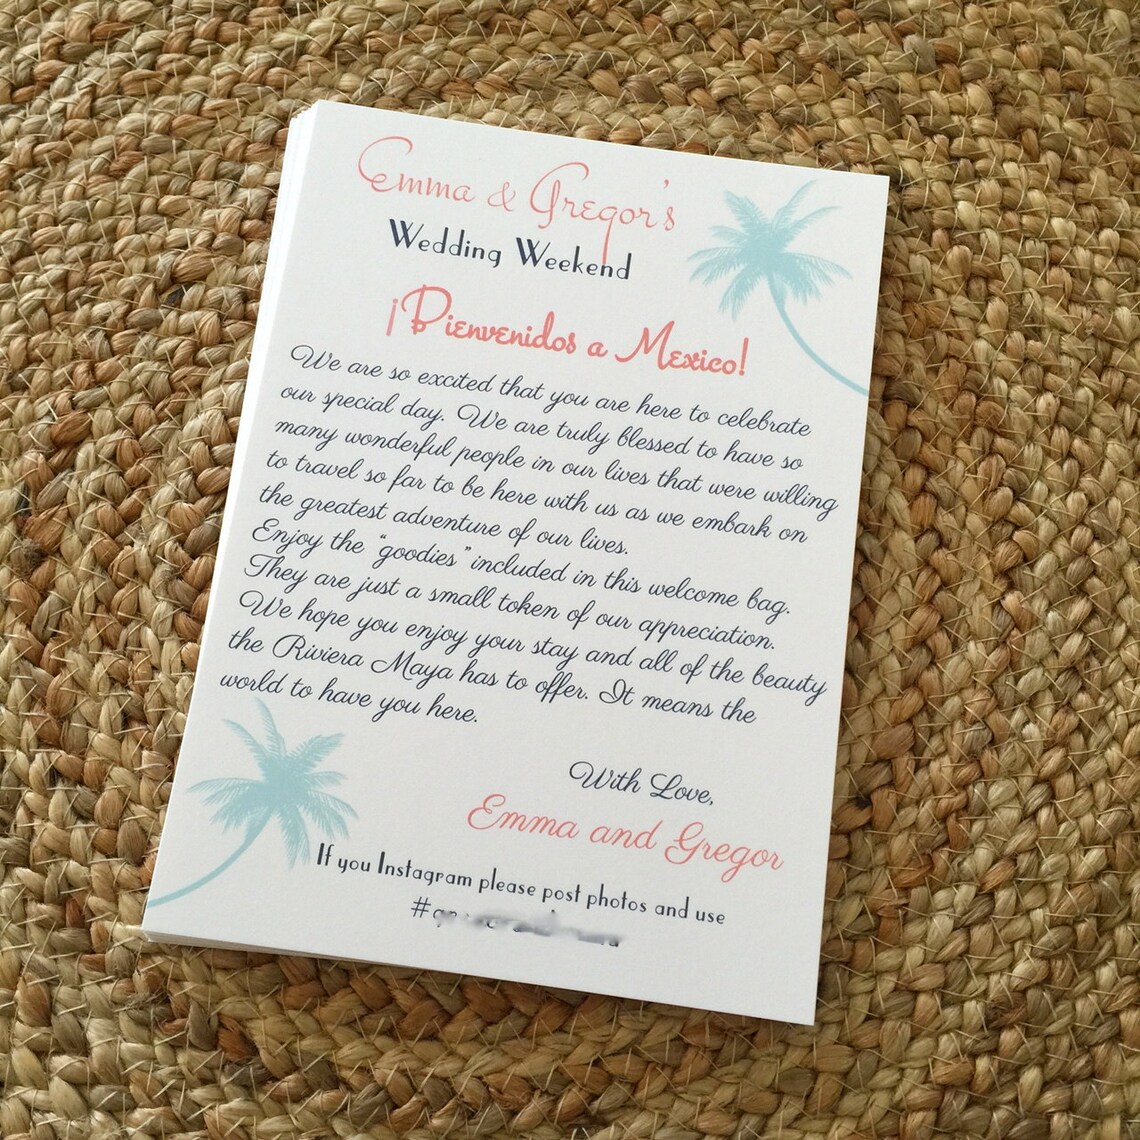 Emma & Gregor's
Wedding Weekend
¡Bienvenidos a Mexico!
We are so excited that you are here to celebrate
our special day. We are truly blessed to have so
many wonderful people in our lives that were willing
to travel so far to be here with us as we embark on
the greatest adventure of our lives.
Enjoy the "goodies" included in this welcome bag.
They are just a small token of our appreciation.
We hope you enjoy your stay and all of the beauty
the Riviera Maya has to offer. It means the
world to have you here.
With Love,
Emma and Gregor
If you Instagram please post photos and use